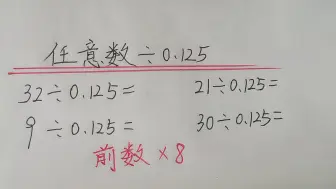 任意数÷0.125
32÷0.125= 21÷0.125=
9÷0.125= 30÷0.125=
前数×8